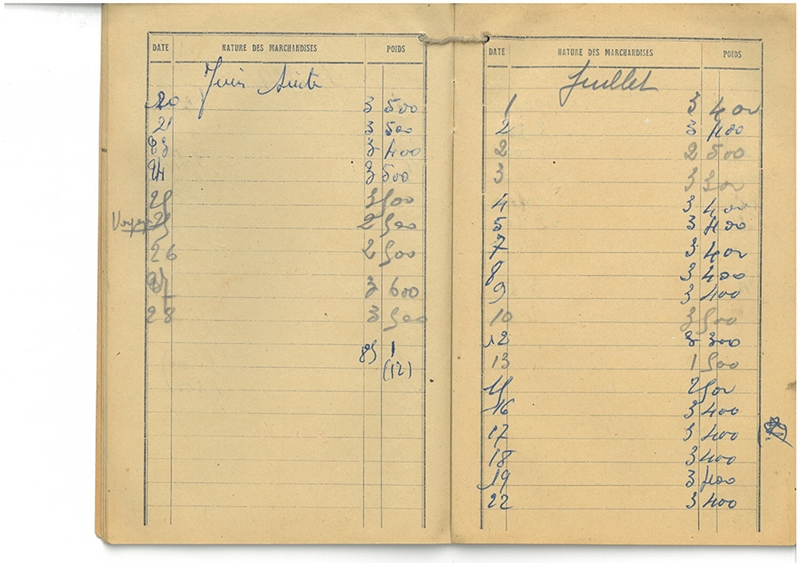 DATE NATURE DES MARCHANDISES POIDS
Juin Suite
20 3 500
21 3 500
23 3 400
24 3 500
25 3 500
25 2 500
26 2 500
27 3 600
28 3 500
85 1
(12)
DATE NATURE DES MARCHANDISES POIDS
Juillet
1 3 400
2 3 400
2 2 500
3 3 300
4 3 400
5 3 400
7 3 400
8 3 400
9 3 400
10 3 500
12 3 300
13 1 500
15 2 500
16 3 400
17 3 400
18 3 400
19 3 400
22 3 400